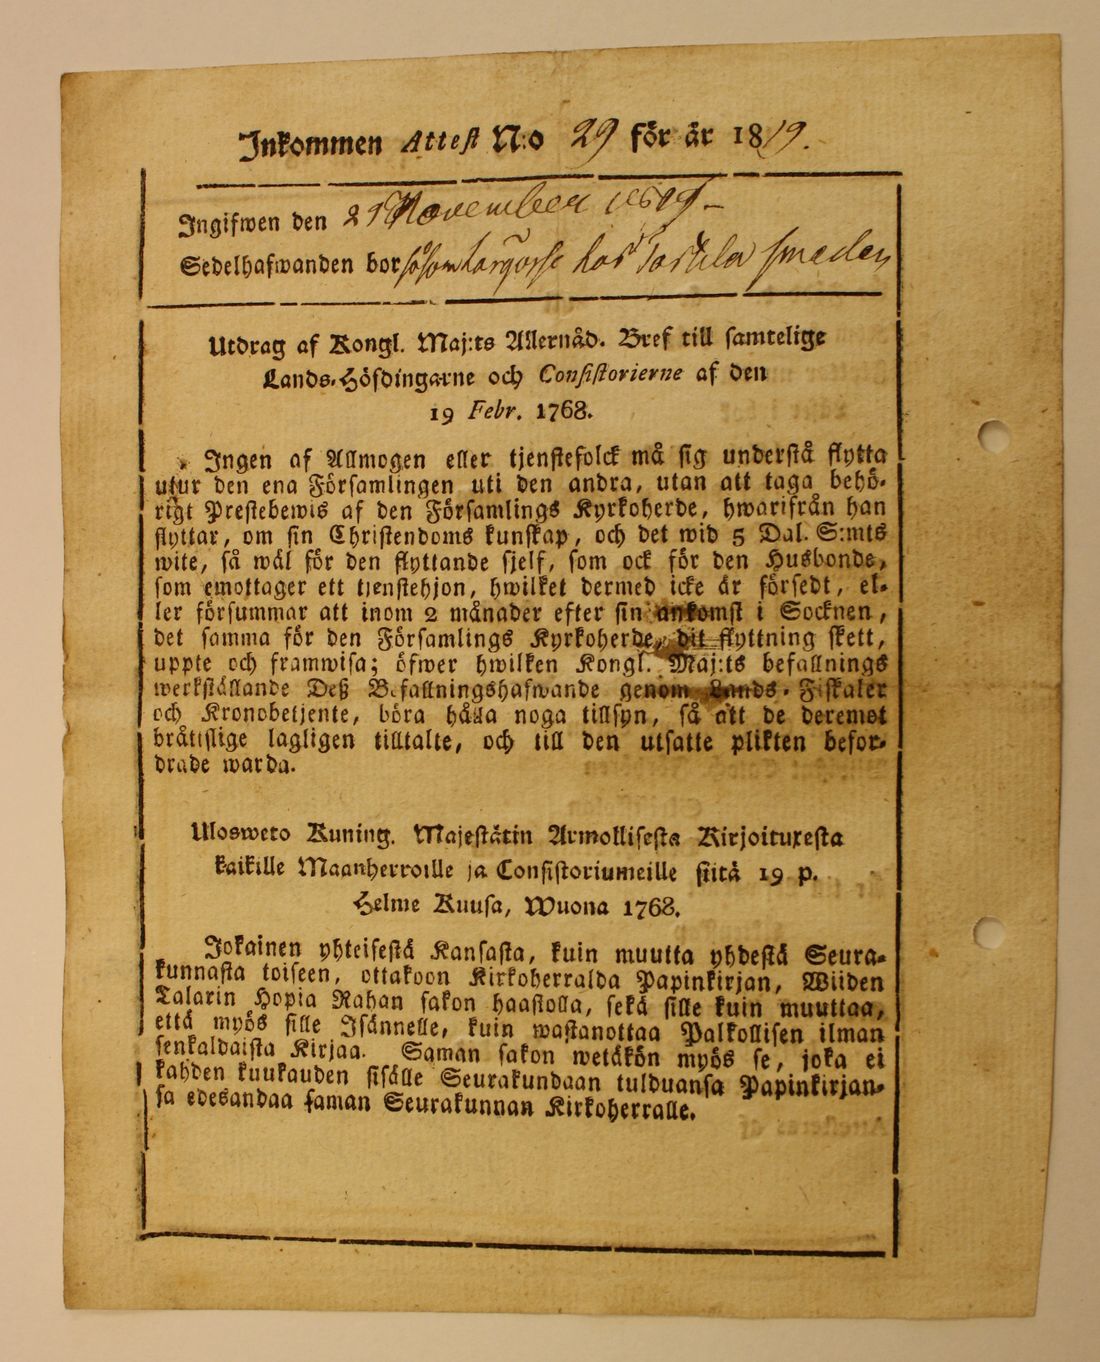 Inkommen Attest N:o 29 för är 1819.
Ingifwen den 29 November 1819
Sedelhafwanden bor såsom lärgosse hos smeden
Utdrag af Kongl. Maj:ts Allernåd. Bref till samtelige
Lands-Höfdingarne och Consistorierne af den
19 Febr. 1768.
Ingen af Allmogen eller tjenstefolck må sig understå flytta
utur den ena Församlingen uti den andra, utan att taga behö-
rigt Prestebewis af den Församlings Kyrkoherde, hwarifrån han
flyttar, om sin Christendoms kunskap, och det wid 5 Dal. S:mts
wite, så wäl för den flyttande sjelf, som ock för den Husbonde,
som emottager ett tjenstehjon, hwilket dermed icke är försedt, el-
ler försummar att inom 2 månader efter sin ankomst i Socknen,
det samma för den Församlings Kyrkoherde, dit flyttning skett,
uppte och framwisa; öfwer hwilken Kongl. Maj:ts befallnings
werkställande Deß Befallningshafwande genom Lands-Fiskaler
och Kronobetjente, böra hålla noga tillsyn, så att de deremot
bråttslige lagligen tilltalte, och till den utsatte plikten befor-
drade warda.
Ulosweto Kuning. Majestätin Armollisesta Kirjoituxesta
kaikille Maanherroille ja Consistoriumeille siitä 19 p.
Helme Kuusa, Wuona 1768.
Jokainen yhteisestä Kansasta, kuin muutta yhdestä Seura-
kunnasta toiseen, ottakoon Kirkoherralda Papinkirjan, Wiiden
Talarin Hopia Rahan sakon haastolla, sekä sille kuin muuttaa,
että myös sille Isännelle, kuin wastanottaa Palkollisen ilman
senkaldaista Kirjaa. Saman sakon wetäkön myös se, joka ei
kahden kuukauden sisälle Seurakundaan tulduansa Papinkirjan-
sa edesandaa saman Seurakunnan Kirkoherralle.